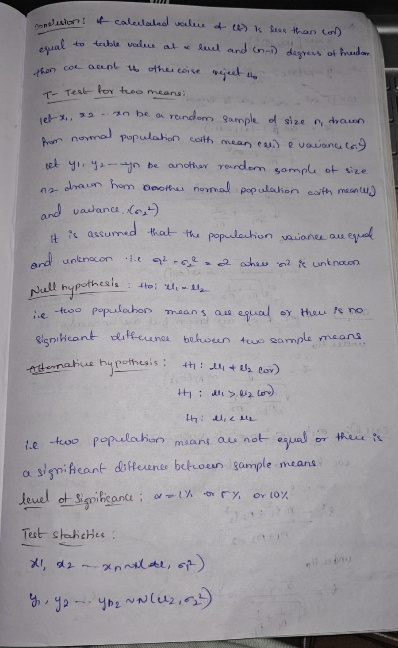 Conclusion: if calculated value of (t) is less than (or)
equal to table value at α level and (n-1) degrees of freedom
then we accept H₀ otherwise reject H₀
T- Test for two means:
let x₁, x₂ -- xn be a random sample of size n₁ drawn
from normal population with mean (μ₁) & variance (σ₁²)
let y₁, y₂ -- yn be another random sample of size
n₂ drawn from another normal population with mean (μ₂)
and variance (σ₂²)
It is assumed that the population variance are equal
and unknown i.e σ₁² = σ₂² = σ² where σ² is unknown
Null hypothesis: H₀: μ₁ = μ₂
i.e two population means are equal or there is no
significant difference between two sample means
Alternative hypothesis: H₁: μ₁ ≠ μ₂ (or)
H₁: μ₁ > μ₂ (or)
H₁: μ₁ < μ₂
i.e two population means are not equal or there is
a significant difference between sample means
level of significance: α = 1% or 5% or 10%
Test statistics:
x₁, x₂ --- xn ~ N(μ₁, σ₁²)
y₁, y₂ --- yn₂ ~ N(μ₂, σ₂²)